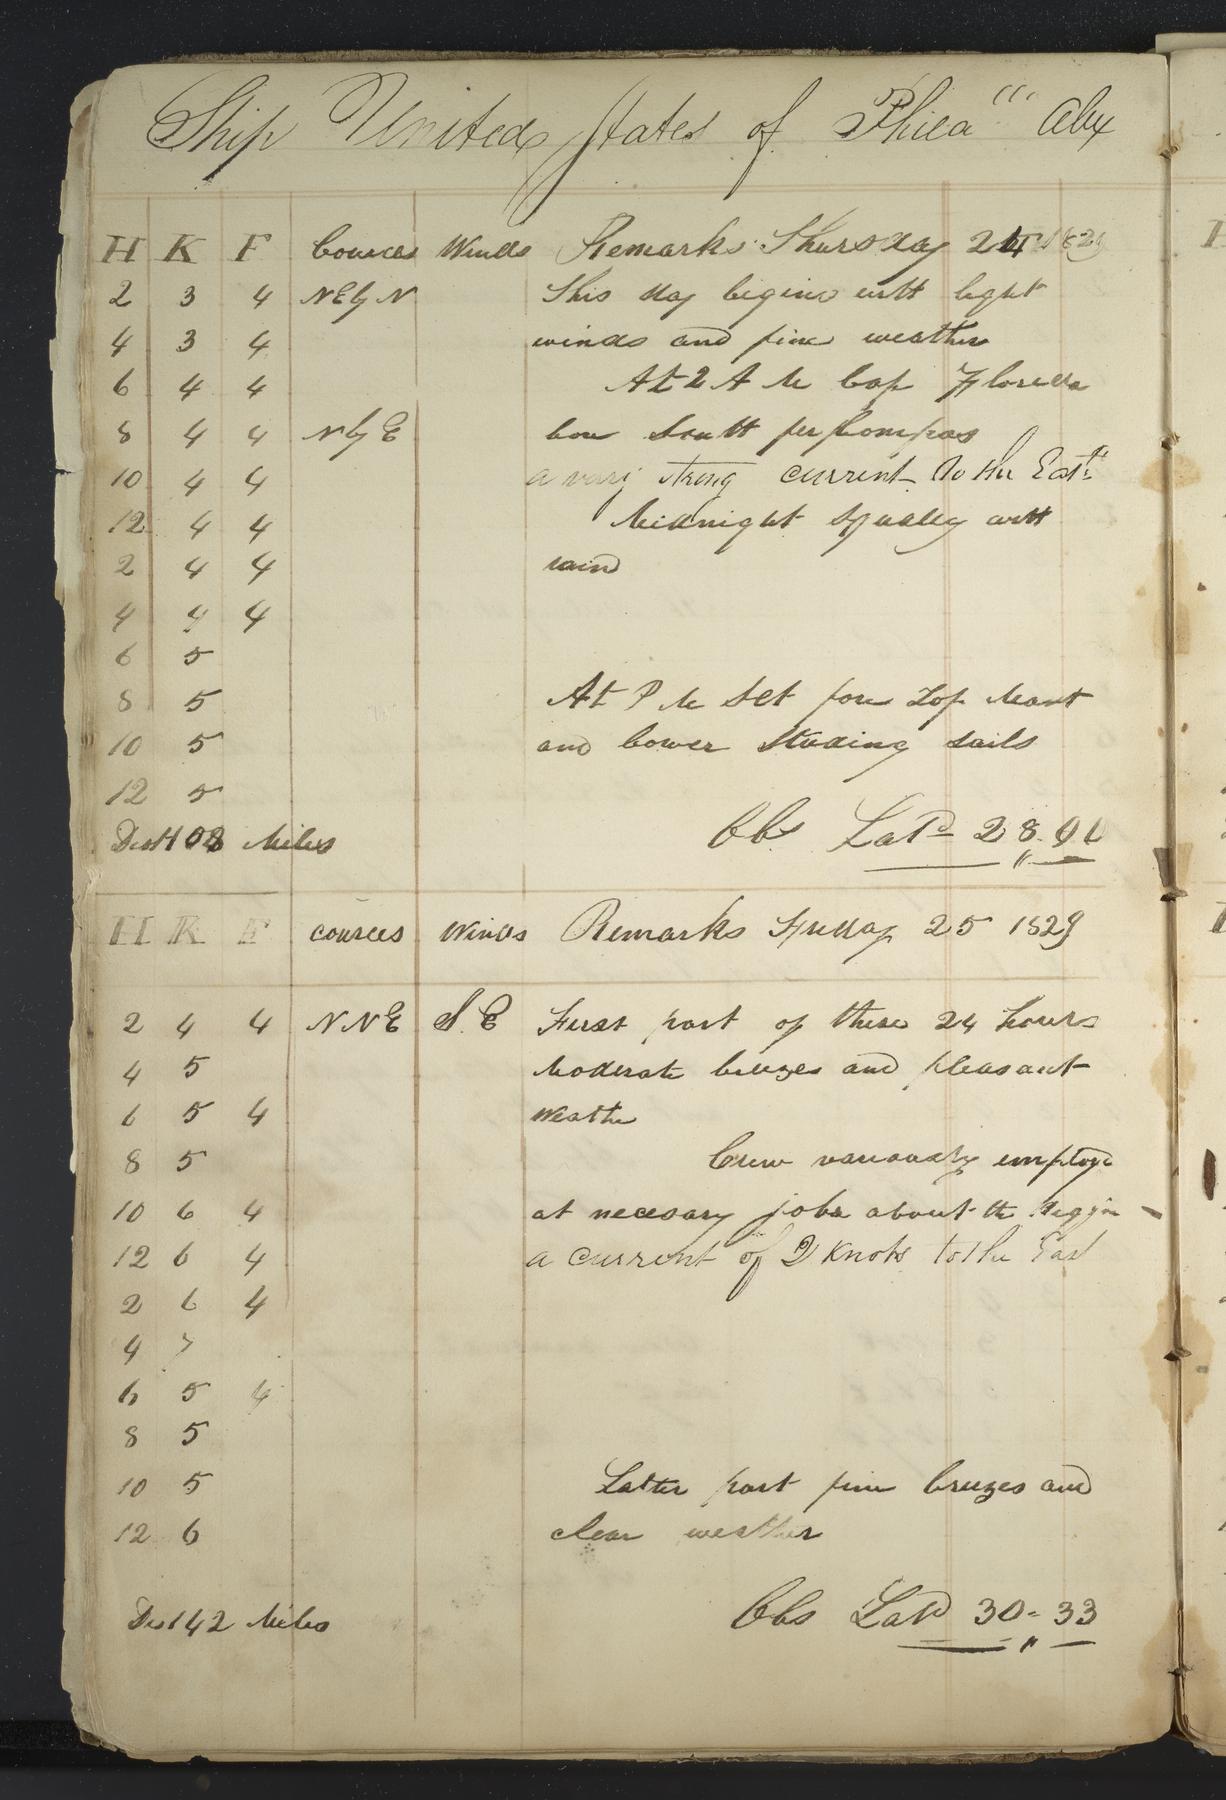 Ship United States of Phila""" Alex
H K F Cources Winds Remarks Thursday 24 1829
2 3 4 NEby N This day begins with light
4 3 4 winds and fine weather
6 4 4 At 2 A M Cap Floreda
8 4 4 N by E bore South per Compas
10 4 4 a very strong current to the East
12 4 4 Midnight Squally with
2 4 4 raind
4 4 4
6 5
8 5 At P M Set fore Top Mast
10 5 and Lower Studing sails
12 5
Dist 108 Miles Obs Latd 28.01
H K F cources Winds Remarks Friday 25 1829
2 4 4 N N E S. E First part of these 24 hours
4 5 Moderate breezes and pleasant
6 5 4 Weathe
8 5 Crew variously employd
10 6 4 at necesary jobs about the Riggin
12 6 4 a current of 2 Knots to the East
2 6 4
4 7
6 5 4
8 5
10 5 Latter part fine breezes and
12 6 clear weather
Dis 142 Miles Obs Latd 30" 33